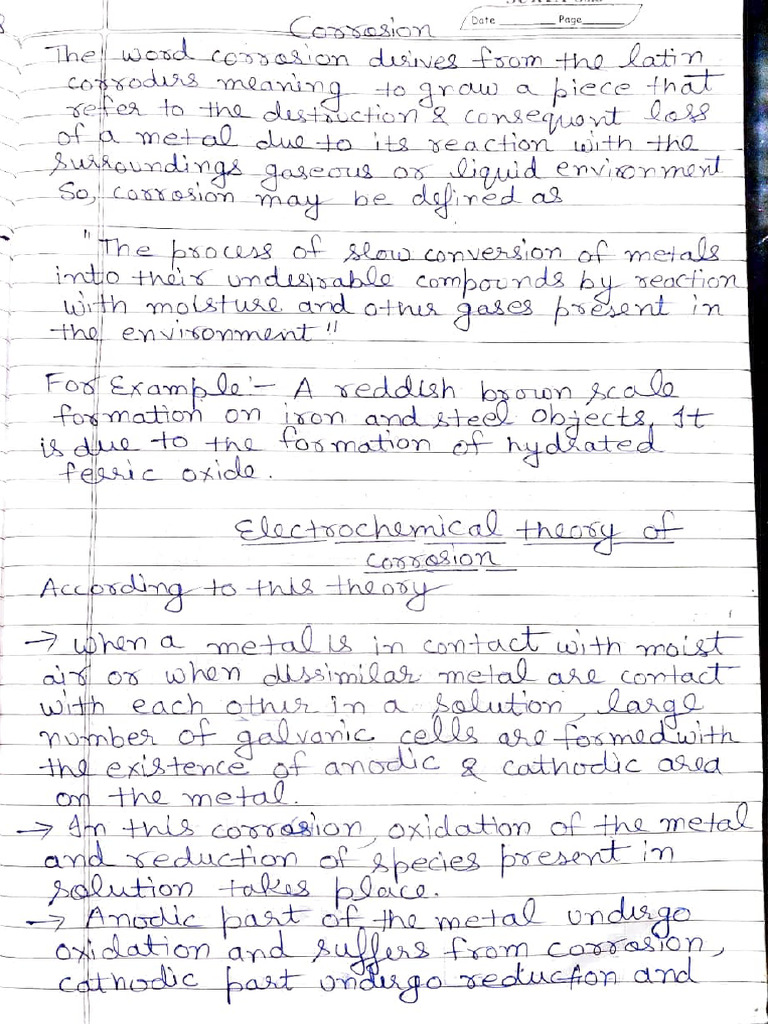 Corrosion
Date Page
The word corrosion derives from the latin
corroders meaning to gnaw a piece that
refer to the destruction & consequent loss
of a metal due to its reaction with the
surroundings gaseous or liquid environment
So, corrosion may be defined as
"The process of slow conversion of metals
into their undesirable compounds by reaction
with moisture and other gases present in
the environment"
For Example:- A reddish brown scale
formation on iron and steel objects, It
is due to the formation of hydrated
ferric oxide.
Electrochemical theory of
corrosion
According to this theory
→ When a metal is in contact with moist
air or when dissimilar metal are contact
with each other in a solution, large
number of galvanic cells are formed with
the existence of anodic & cathodic area
on the metal.
→ In this corrosion, oxidation of the metal
and reduction of species present in
solution takes place.
→ Anodic part of the metal undergo
oxidation and suffers from corrosion,
cathodic part undergo reduction and